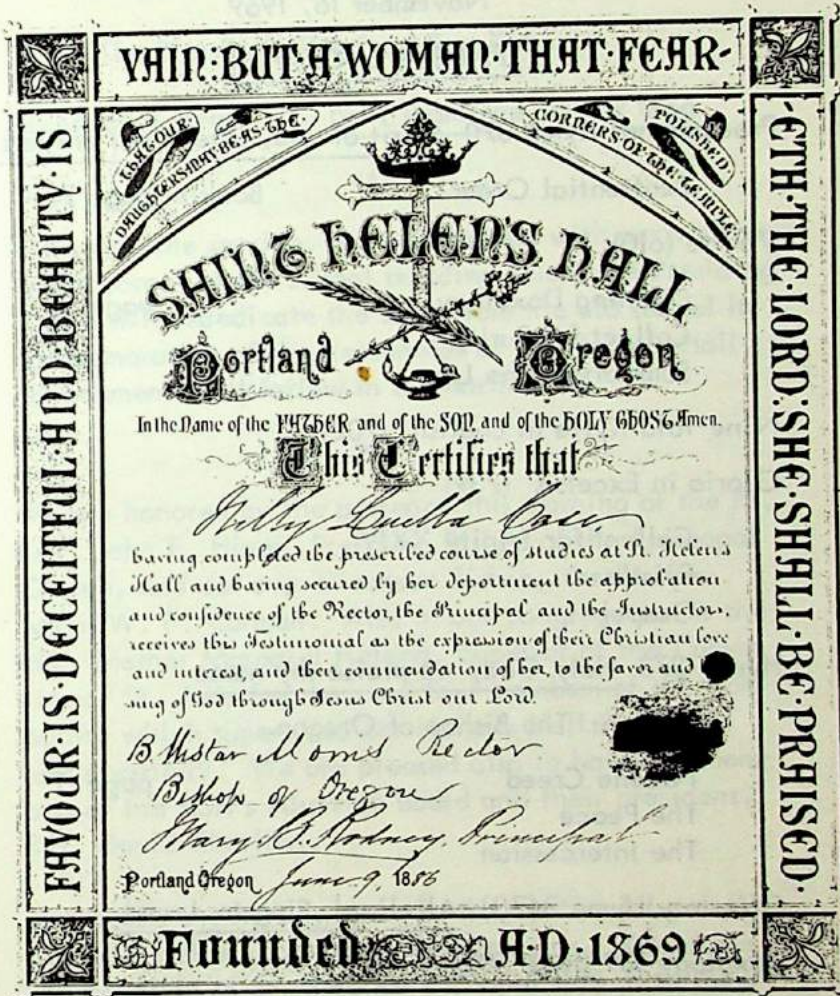 FAVOUR·IS·DECEITFUL·AND·BEAUTY·IS
VAIN:BUT·A·WOMAN·THAT·FEAR-
·ETH·THE·LORD·SHE·SHALL·BE·PRAISED·
THAT·OUR·
DAUGHTERS·MAY·BE·AS·THE·
POLISHED
CORNERS·OF·THE·TEMPLE·
SAINT HELEN'S HALL
Portland Oregon
In the Name of the FATHER and of the SON, and of the HOLY GHOST, Amen.
This Certifies that
Luella
having completed the prescribed course of studies at St. Helen's
Hall and having secured by her deportment the approbation
and confidence of the Rector, the Principal and the Instructors,
receives this Testimonial as the expression of their Christian love
and interest, and their commendation of her, to the favor and
sing of God through Jesus Christ our Lord.
B. Wistar Morris Rector
Bishop of Oregon
Mary B. Rodney. Principal
Portland Oregon June 9, 1886
Founded A·D·1869